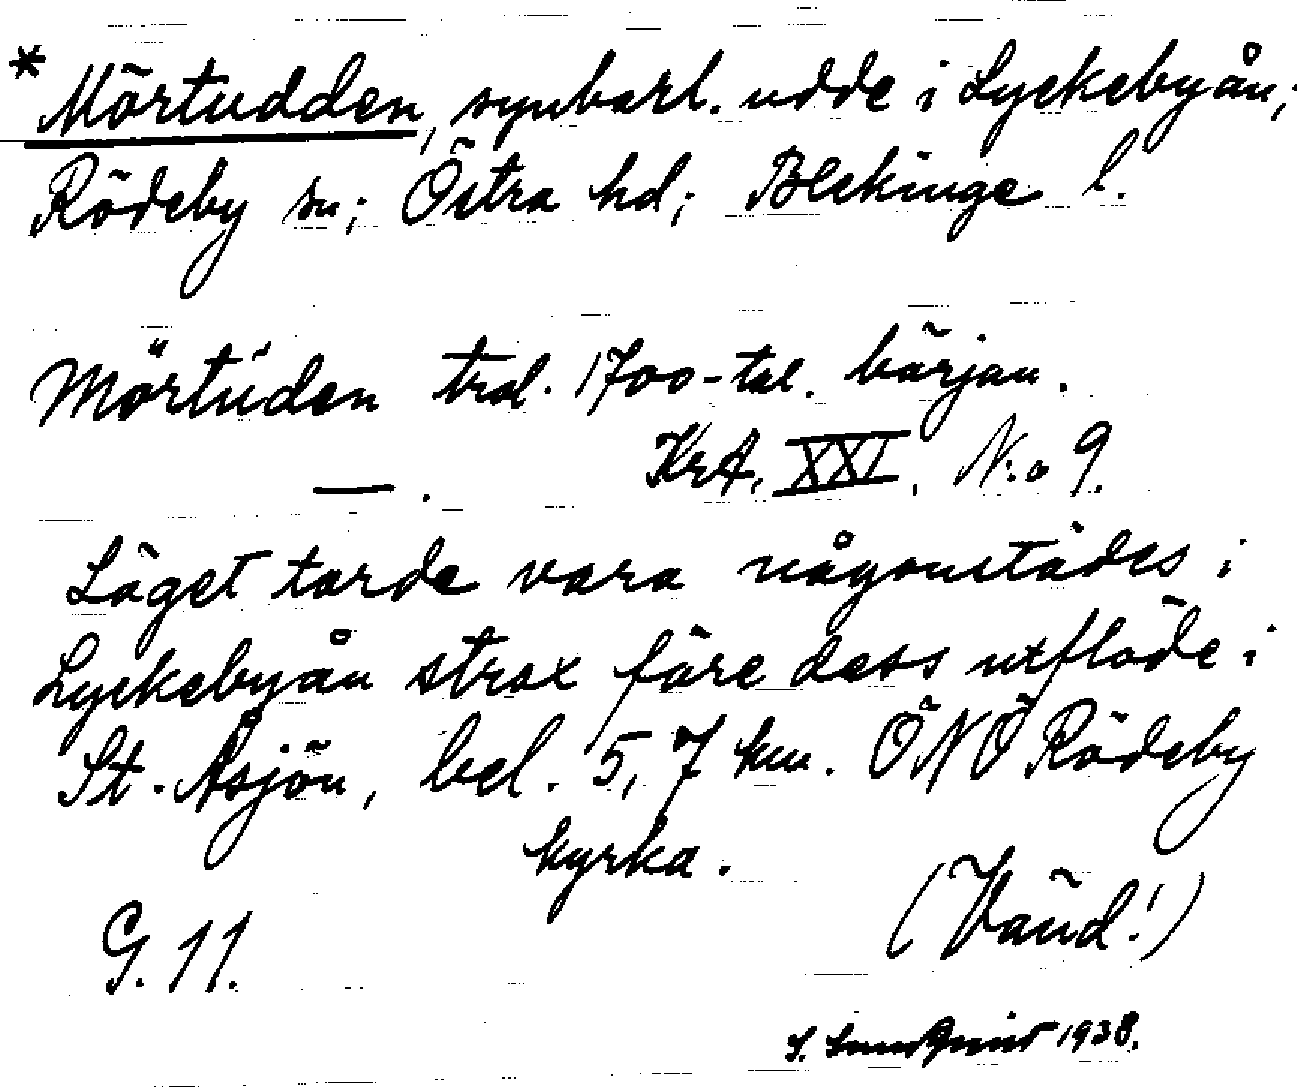 * Mörtudden, synbarl. udde i Lyckebyån;
Rödeby sn; Östra hd; Blekinge l.
Mörtüden trol. 1700-tal. början.
KrA, XXI, N:o 9.
— .
Läget torde vara någonstädes i
Lyckebyån strax före dess utflöde i
St. Åsjön, bel. 5,7 km. ÖNÖ Rödeby
kyrka.
(Vänd!)
G. 11.
S. Lundqvist 1938.